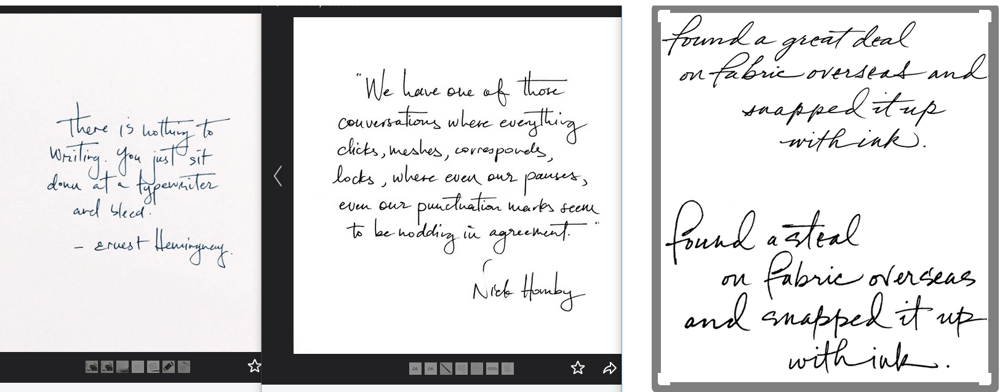 there is nothing to
writing. You just sit
down at a typewriter
and bleed.
- Ernest Hemingway.
"We have one of those
conversations where everything
clicks, meshes, corresponds,
locks, where even our pauses,
even our punctuation marks seem
to be nodding in agreement."
Nick Hornby
found a great deal
on fabric overseas and
snapped it up
with ink.
found a steal
on fabric overseas
and snapped it up
with ink.